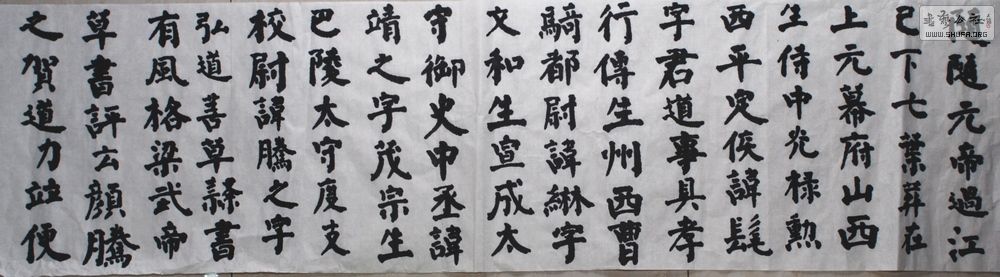 隨元帝過江
已下七葉葬在
上元幕府山西
生侍中光祿勳
西平定侯諱髦
字君道事具孝
行傳生州西曹
騎都尉諱綝字
文和生宣成太
守御史中丞諱
靖之字茂宗生
巴陵太守度支
校尉諱騰之字
弘道善草隸書
有風格梁武帝
草書評云顏騰
之賀道力竝便
書法公社
WWW.SHUFA.ORG